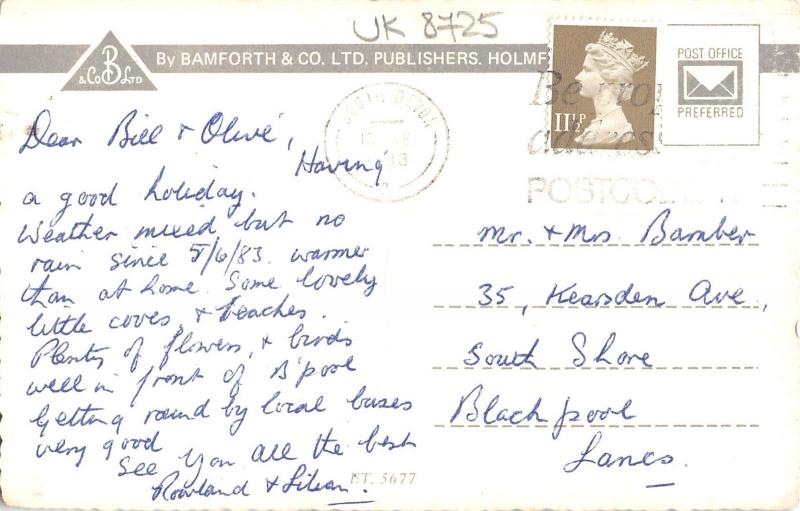 UK 8725
B
& Co LTD
By BAMFORTH & CO. LTD. PUBLISHERS. HOLMF
11½P
POST OFFICE
PREFERRED
SOUTH DEVON
Be prop
address
POSTCO
Dear Bill & Olive,
Having
a good holiday.
Weather mixed but no
rain since 5/6/83. warmer
than at home. Some lovely
little coves, & beaches.
Plenty of flowers, & birds
well in front of B'pool
Getting round by local buses
very good
See you all the best
Rowland & Lilian.
ET. 5677
Mr. & Mrs. Bamber
35, Kearsden Ave,
South Shore
Blackpool
Lancs.